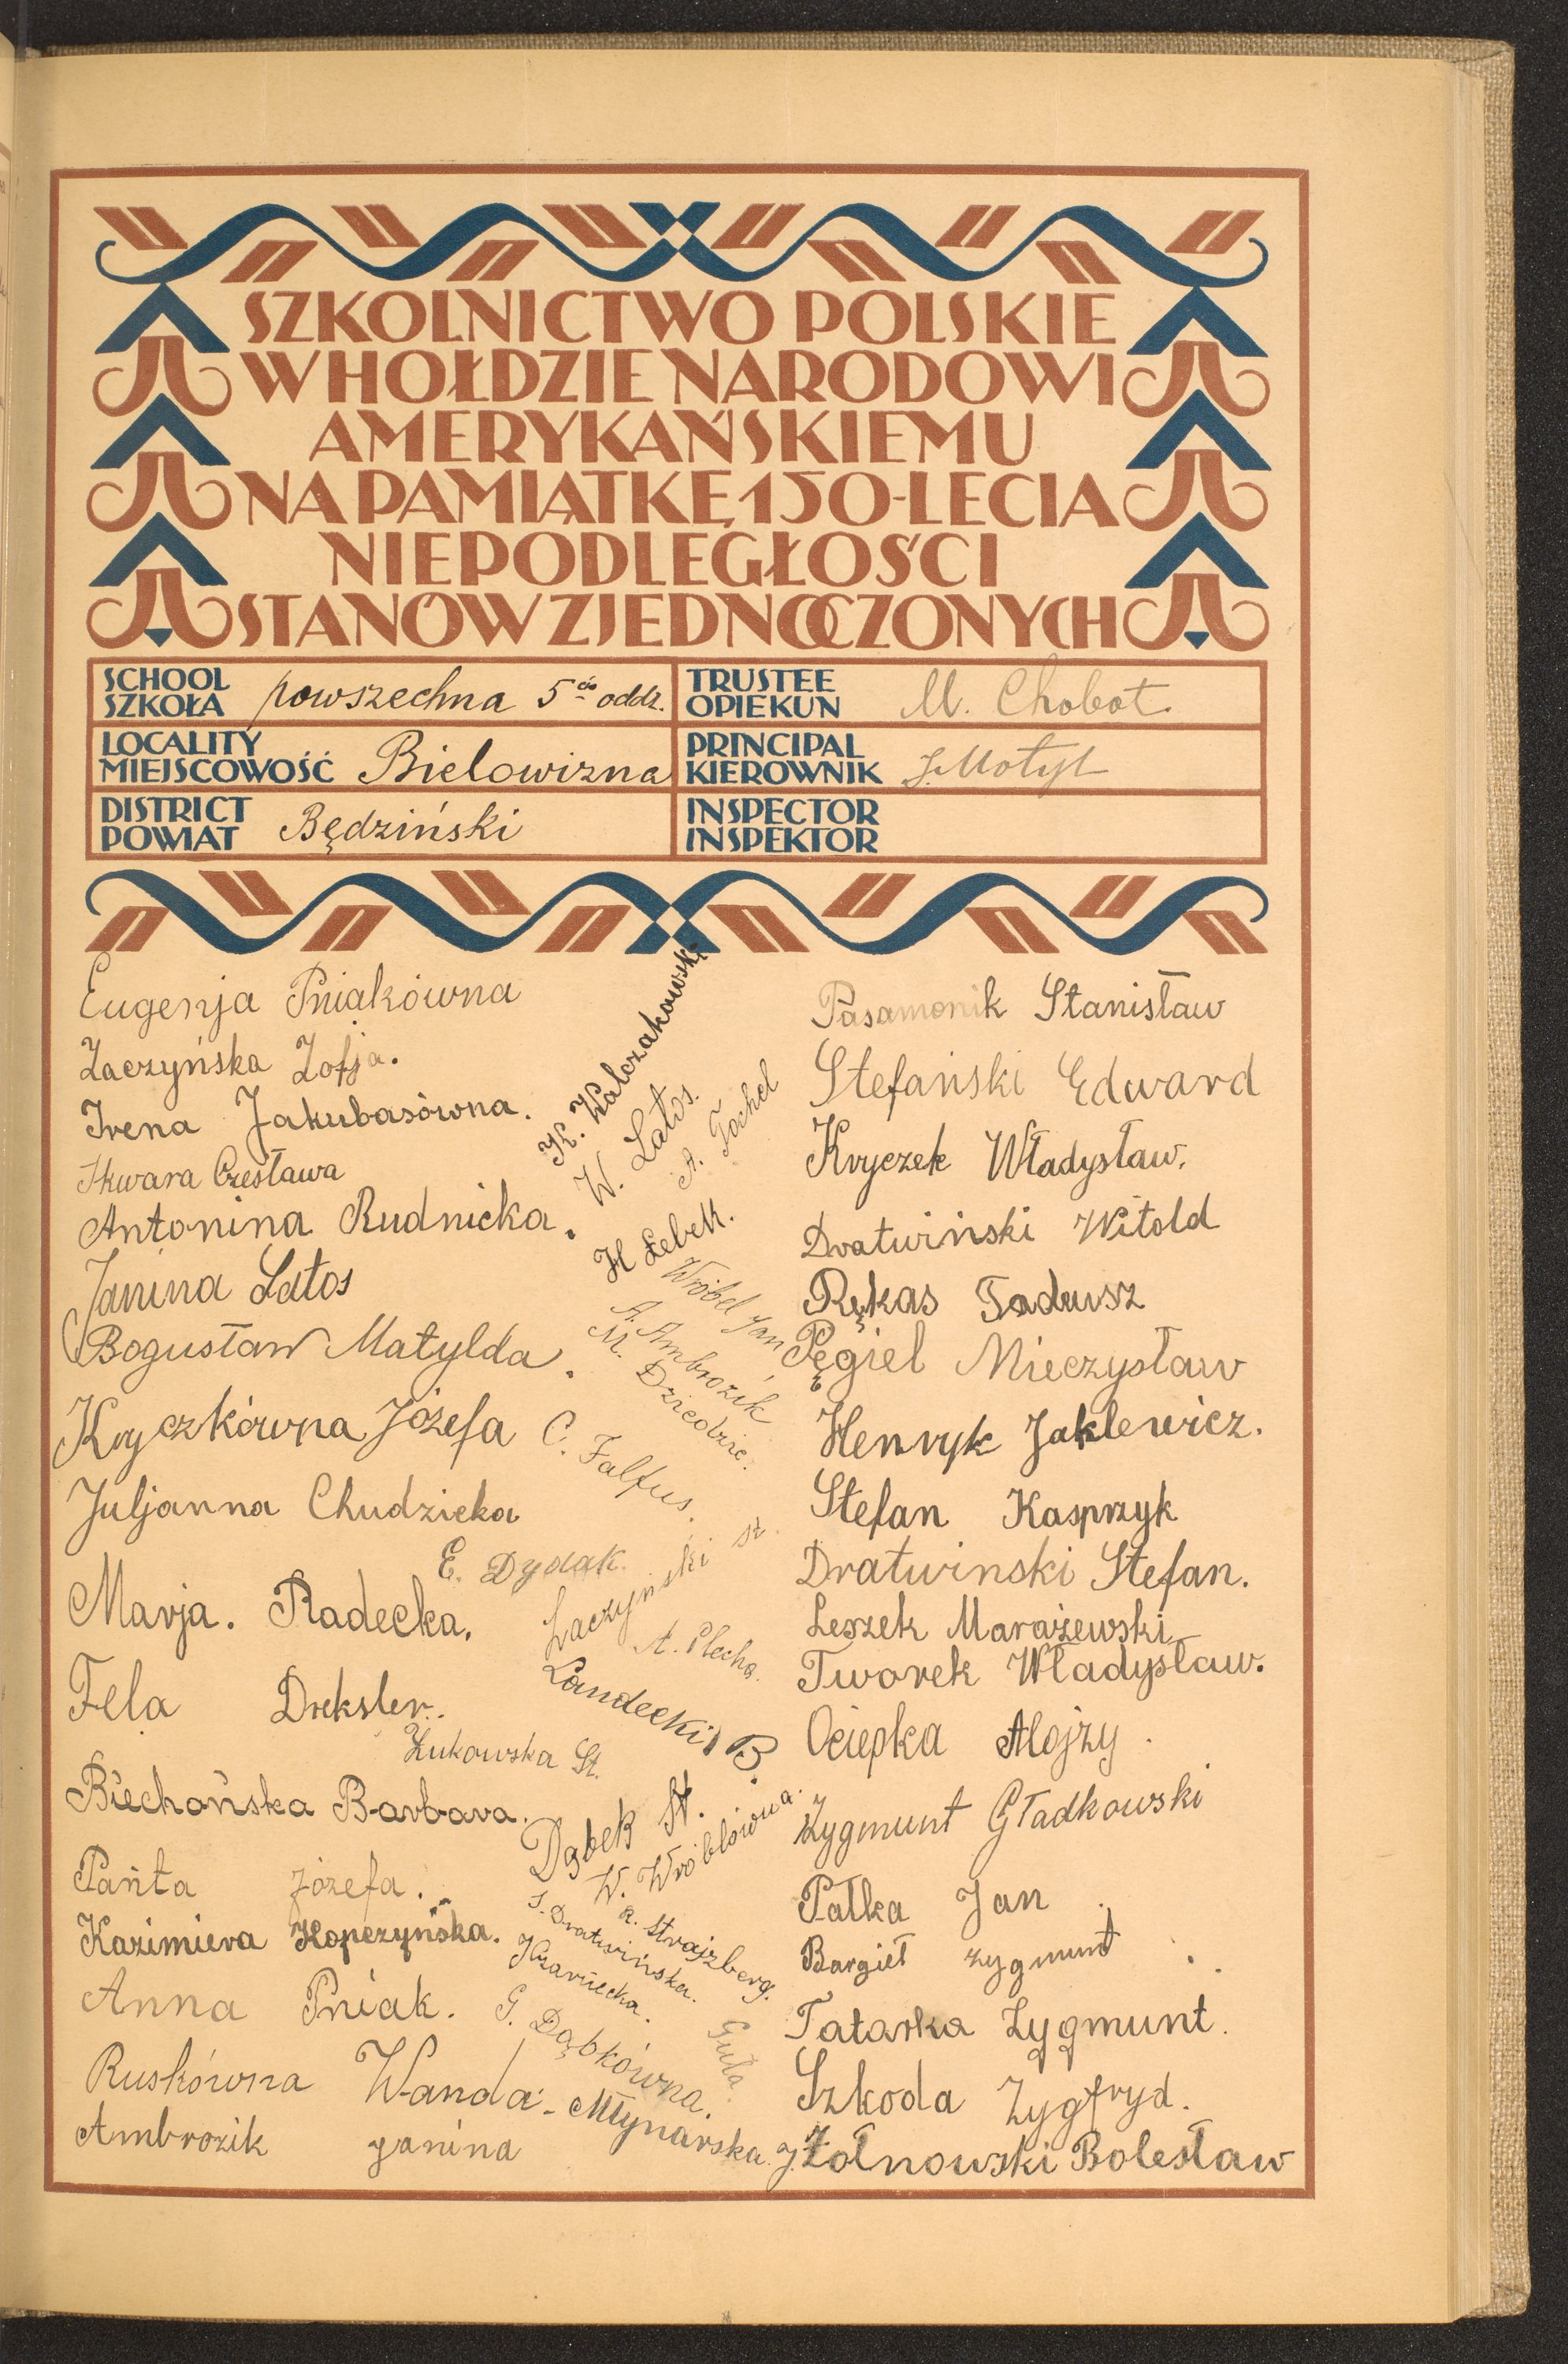 SZKOLNICTWO POLSKIE
W HOŁDZIE NARODOWI
AMERYKAŃSKIEMU
NA PAMIĄTKĘ 150-LECIA
NIEPODLEGŁOŚCI
STANÓW ZJEDNOCZONYCH
SCHOOL
SZKOŁA powszechna 5cio oddz.
TRUSTEE
OPIEKUN M. Chobot
LOCALITY
MIEJSCOWOŚĆ Bielowizna
PRINCIPAL
KIEROWNIK J. Motyl
DISTRICT
POWIAT Będziński
INSPECTOR
INSPEKTOR
Eugenja Pniakówna
Zaczyńska Zofja.
Irena Jakubasówna.
Skwara Czesława
Antonina Rudnicka.
Janina Latos
Bogusław Matylda.
Kryczkówna Józefa
Juljanna Chudzicka
Marja. Radecka.
Fela Dreksler.
Żukowska St.
Biechońska Barbara.
Pańta Józefa.
Kazimiera Kopczyńska.
Anna Pniak.
Ruskówna Wanda.
Ambrozik Janina
K. Walczakowski
W. Latos.
A. Tochel
H Łebek.
Wróbel Jan
A. Ambrozik
M. Dziedzic.
C. Falfus.
E. Dydak.
Łaczyński St.
A. Plecha.
Landecki B.
Dąbek St.
W. Wróblówna.
R. Strajzberg.
S. Dratwińska.
G. Dąbkówna.
Guła.
Młynarska J.
Pasamonik Stanisław
Stefański Edward
Kryczek Władysław.
Dratwiński Witold
Rękas Tadeusz
Pęgiel Mieczysław
Henryk Jaklewicz.
Stefan Kasprzyk
Dratwinski Stefan.
Leszek Marażewski
Tworek Władysław.
Ociepka Alojzy
Zygmunt Gładkowski
Pałka Jan
Bargieł Zygmunt
Tatarka Zygmunt.
Szkoda Zygfryd.
Żołnowski Bolesław